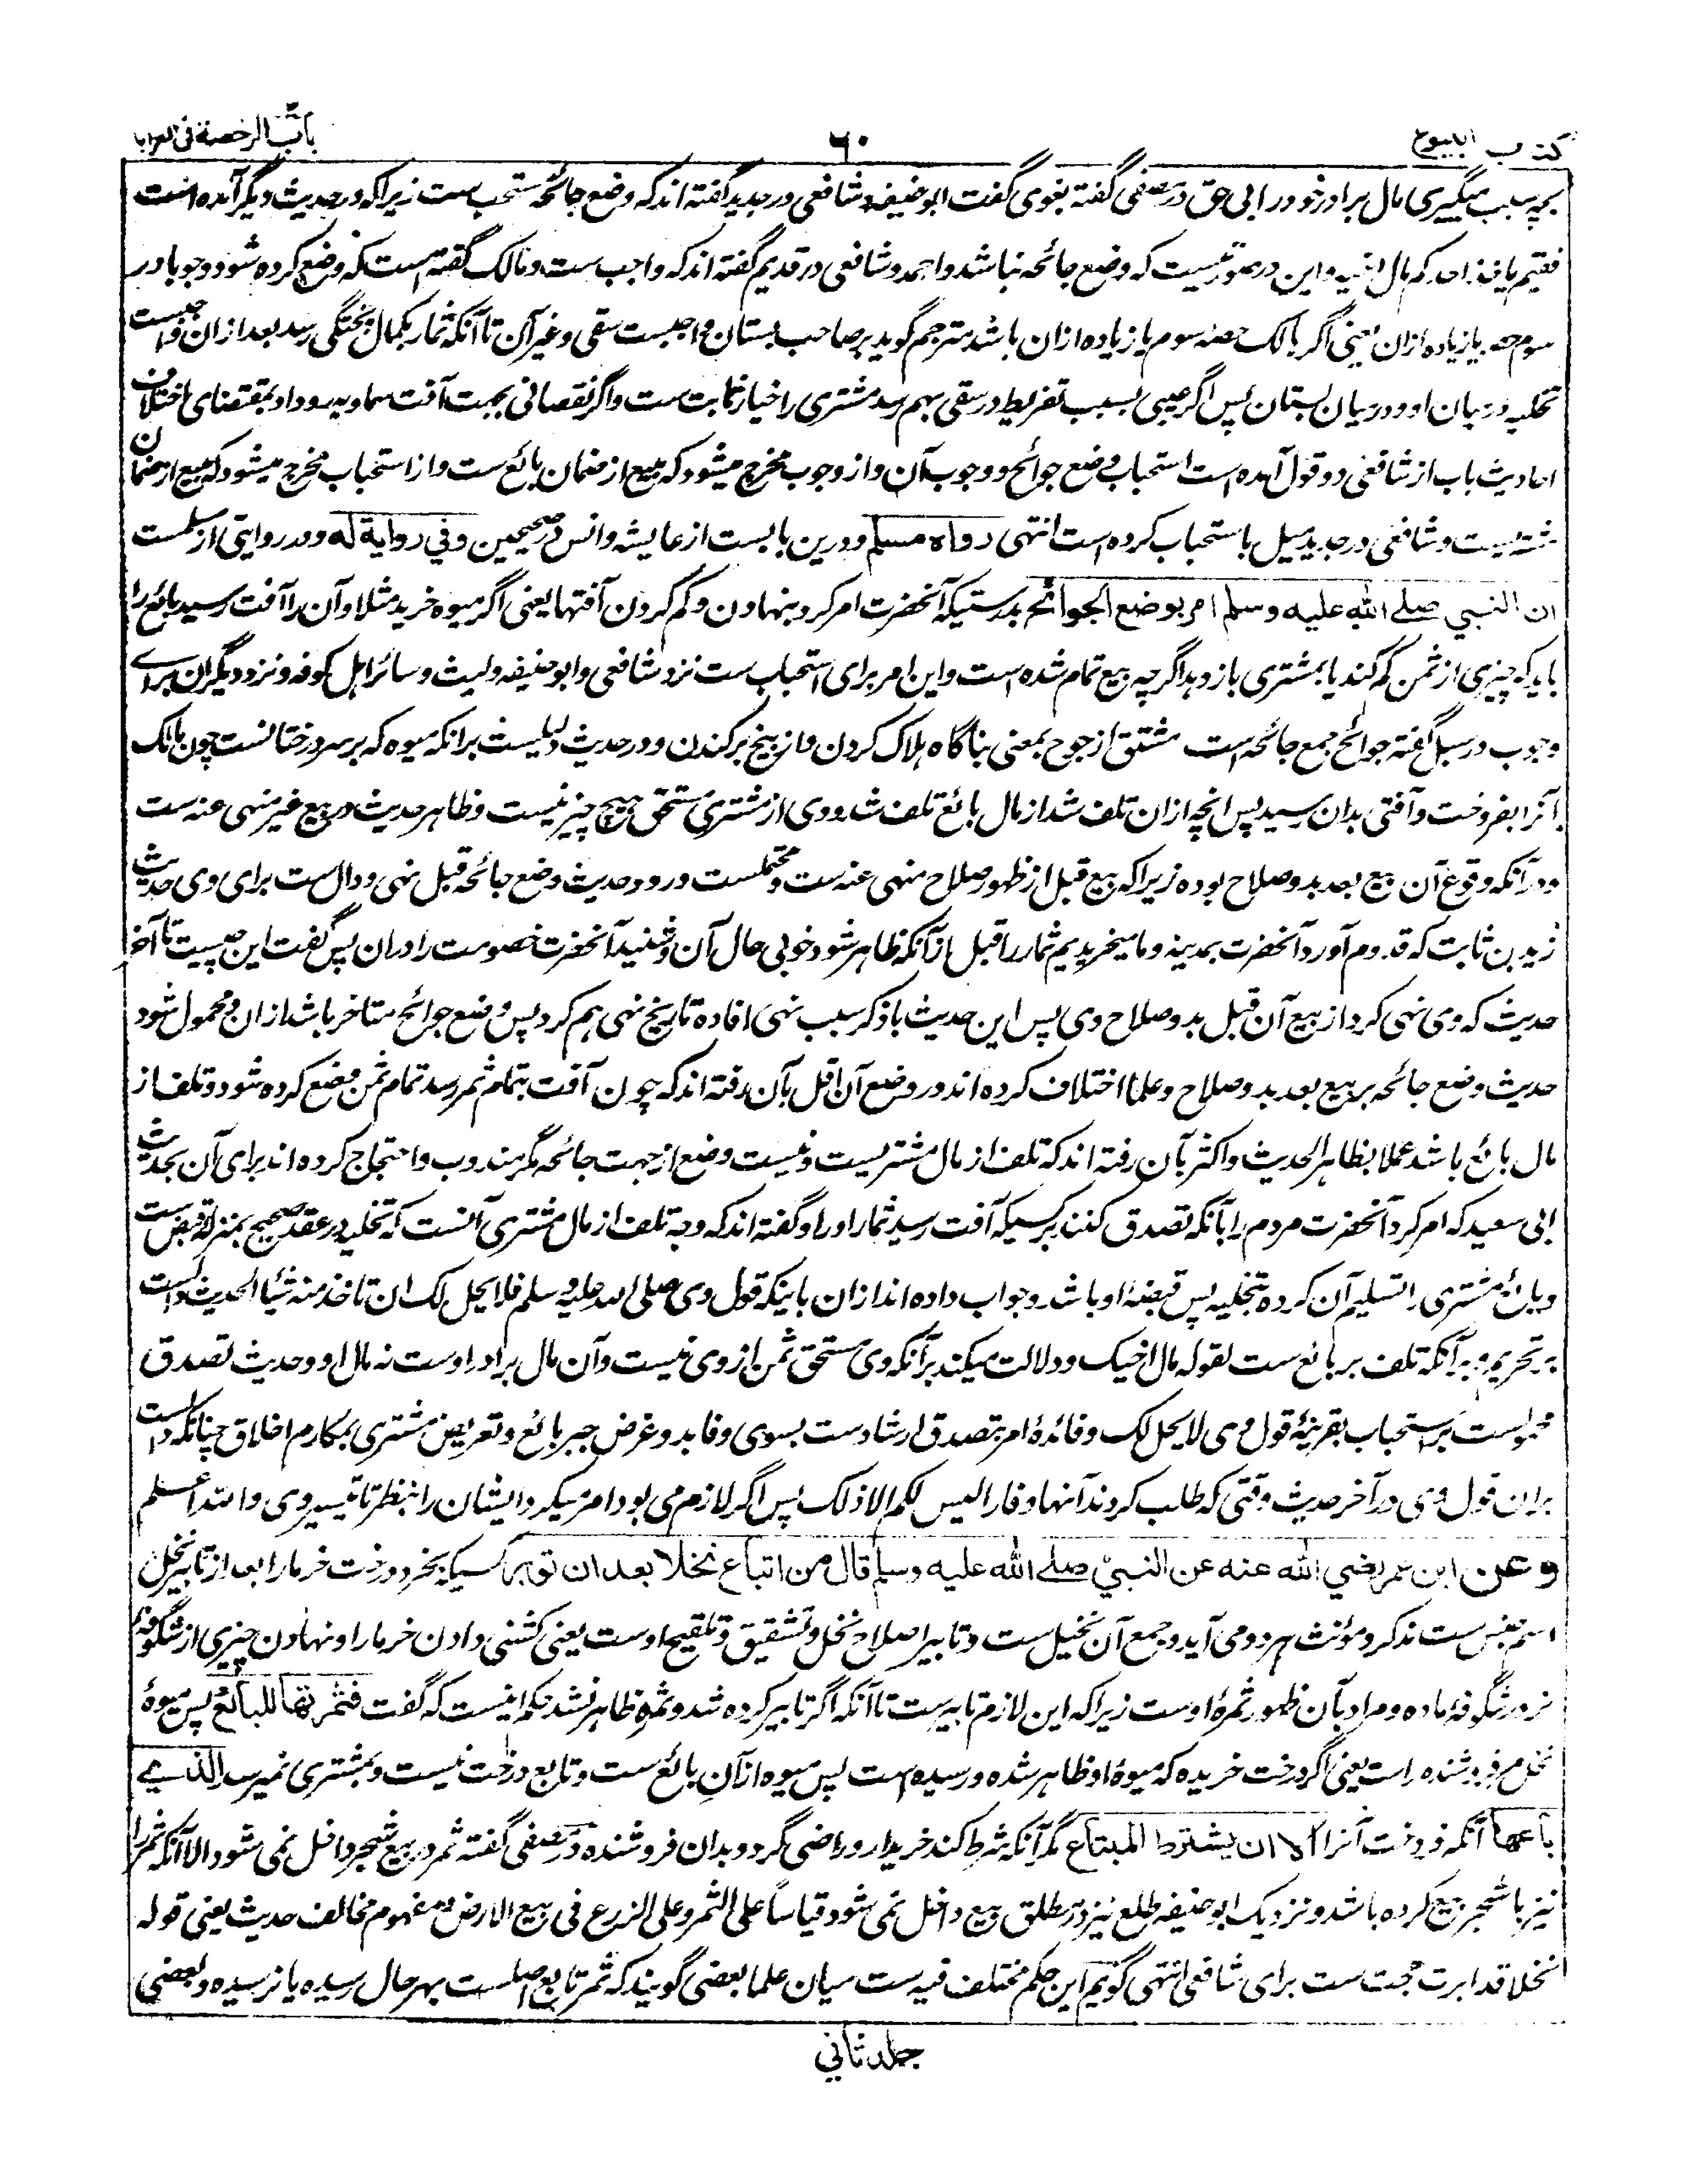 کتاب البیوع
۶۰
باب الرخصة فی العرایا
بچه سبب میگیری مال برادر خود را بی حق در مصفی گفته بغوی گفت ابو حنیفه و شافعی در جدید گفته اند که وضع جائحه مستحب ست زیرا که در حدیث دیگر آمده است
فقیم یاخذ احدکم مال اخیه و این در صورتیست که وضع جائحه نباشد و احمد و شافعی در قدیم گفته اند که واجب ست و مالک گفته است که وضع کرده شود وجوبا در
سوم حصه یا زیاده ازان یعنی اگر هالک حصه سوم یا زیاده ازان باشد مترجم گوید بر صاحب بستان واجبست سقی و غیر آن تا آنکه ثمار بکمال پختگی رسد بعد ازان واجبست
تخلیه درمیان او و درمیان بستان پس اگر عیبی بسبب تفریط در سقی بهم رسد مشتری را خیار ثابت ست و اگر نقصانی بجهت آفت سماویه رو داد بمقتضای اختلاف
احادیث باب از شافعی دو قول آمده است استحباب وضع جوائح و وجوب آن و از وجوب مخرج میشود که مبیع از ضمان بائع ست و از استحباب مخرج میشود که مبیع از ضمان
مشتریست و شافعی در جدید میل باستحباب کرده است انتهی رواه مسلم و درین بابست از عایشه و انس در صحیحین و فی روایة له و در روایتی از مسلمست
ان النبی صلے الله علیه وسلم امر بوضع الجوائح بدرستیکه آنحضرت امر کرد بنهادن و کم کردن آفتها یعنی اگر میوه خرید مثلا و آن را آفت رسید بائع را
باید که چیزی از ثمن کم کند یا بمشتری باز دهد اگر چه بیع تمام شده است و این امر برای استحباب ست نزد شافعی و ابو حنیفه و لیث و سائر اهل کوفه و نزد دیگران برائے
وجوب در سبل گفته جوائح جمع جائحه است مشتق از جوح بمعنی بناگاه هلاک کردن و از بیخ بر کندن و در حدیث دلیلیست بر آنکه میوه که بر سر درختانست چون مالک
آنرا بفروخت و آفتی بدان رسید پس انچه ازان تلف شد از مال بائع تلف شد و وی از مشتری مستحق هیچ چیز نیست و ظاهر حدیث در بیع غیر منهی عنه ست
و در آنکه وقوع آن بیع بعد بدو صلاح بوده زیرا که بیع قبل از ظهور صلاح منهی عنه ست و محتملست ورود حدیث وضع جائحه قبل نهی و دال ست برای وی حدیث
زید بن ثابت که قدوم آورد آنحضرت بمدینه و ما میخریدیم ثمار را قبل از آنکه ظاهر شود خوبی حال آن و شنید آنحضرت خصومت را دران پس گفت این چیست تا آخر
حدیث که وی نهی کرد از بیع آن قبل بدو صلاح وی پس این حدیث با ذکر سبب نهی افاده تاریخ نهی هم کرد پس وضع جوائح متاخر باشد ازان و محمول شود
حدیث وضع جائحه بر بیع بعد بدو صلاح و علما اختلاف کرده اند در وضع آن اقل بآن رفته اند که چون آفت بتمام ثمر رسد تمام ثمن وضع کرده شود و تلف از
مال بائع باشد عملا بظاهر الحدیث و اکثر بآن رفته اند که تلف از مال مشتریست و نیست وضع از جهت جائحه مگر مندوب و احتجاج کرده اند برای آن بحدیث
ابی سعید که امر کرد آنحضرت مردم را بآنکه تصدق کنند بر کسیکه آفت رسید ثمار او را و گفته اند که وجه تلف از مال مشتری آنست که تخلیه در عقد صحیح بمنزله قبض ست
و بائع مشتری را تسلیم آن کرده بتخلیه پس قبضهٔ او باشد و جواب داده اند ازان باینکه قول وی صلی الله علیه وسلم فلا یحل لک ان تاخذ منه شیئا الحدیث دال ست
بر تحریم و بر آنکه تلف بر بائع ست لقوله مال اخیک و دلالت میکند بر آنکه وی مستحق ثمن از وی نیست و آن مال برادر اوست نه مال او و حدیث تصدق
محمولست بر استحباب بقرینهٔ قول وی لا یحل لک و فائدهٔ امر بتصدق ارشادست بسوی وفا بدو غرض جبر بائع و تعریض مشتری بمکارم اخلاق چنانکه دال ست
بران قول وی در آخر حدیث وقتی که طلب کردند آنها وفا را لیس لکم الا ذلک پس اگر لازم می بود امر میکرد ایشان را بنظر تا تیسیر وی والله اعلم
و عن ابن عمر رضی الله عنه عن النبی صلے الله علیه وسلم قال من ابتاع نخلا بعد ان توبر کسیکه بخرد درخت خرما را بعد از تابیر نخل
اسم جنس ست مذکر و مؤنث هر دو می آید و جمع آن نخیل ست و تابیر اصلاح نخل و تشقیق و تلقیح اوست یعنی گشنی دادن خرما را و نهادن چیزی از شگوفهٔ
نر در شگوفهٔ ماده و مراد بآن ظهور ثمرهٔ اوست زیرا که این لازم تابیرست تا آنکه اگر تابیر کرده شد و ثمره ظاهر نشد حکم این نیست که گفت فثمرتها للبائع پس میوهٔ
نخل مر فروشنده راست یعنی اگر درخت خریده که میوهٔ او ظاهر شده و رسیده است پس میوه از آن بائع ست و تابع درخت نیست و بمشتری نمیرسد الذے
باعها آنکه فروخت آنرا الا ان یشترط المبتاع مگر آنکه شرط کند خریدار و راضی گردد بدان فروشنده در مصفی گفته ثمر در بیع شجر داخل نمی شود الا آنکه ثمر را
نیز با شجر بیع کرده باشد و نزدیک ابو حنیفه طلع نیز در مطلق بیع داخل نمی شود قیاسا علی الثمر و علی الزرع فی بیع الارض و مفهوم مخالف حدیث یعنی قوله
نخلا قد ابرت حجت ست برای شافعی انتهی گویم این حکم مختلف فیه ست میان علما بعضی گویند که ثمر تابع اصلست بهر حال رسیده یا نرسیده و بعضی
جلد ثانی